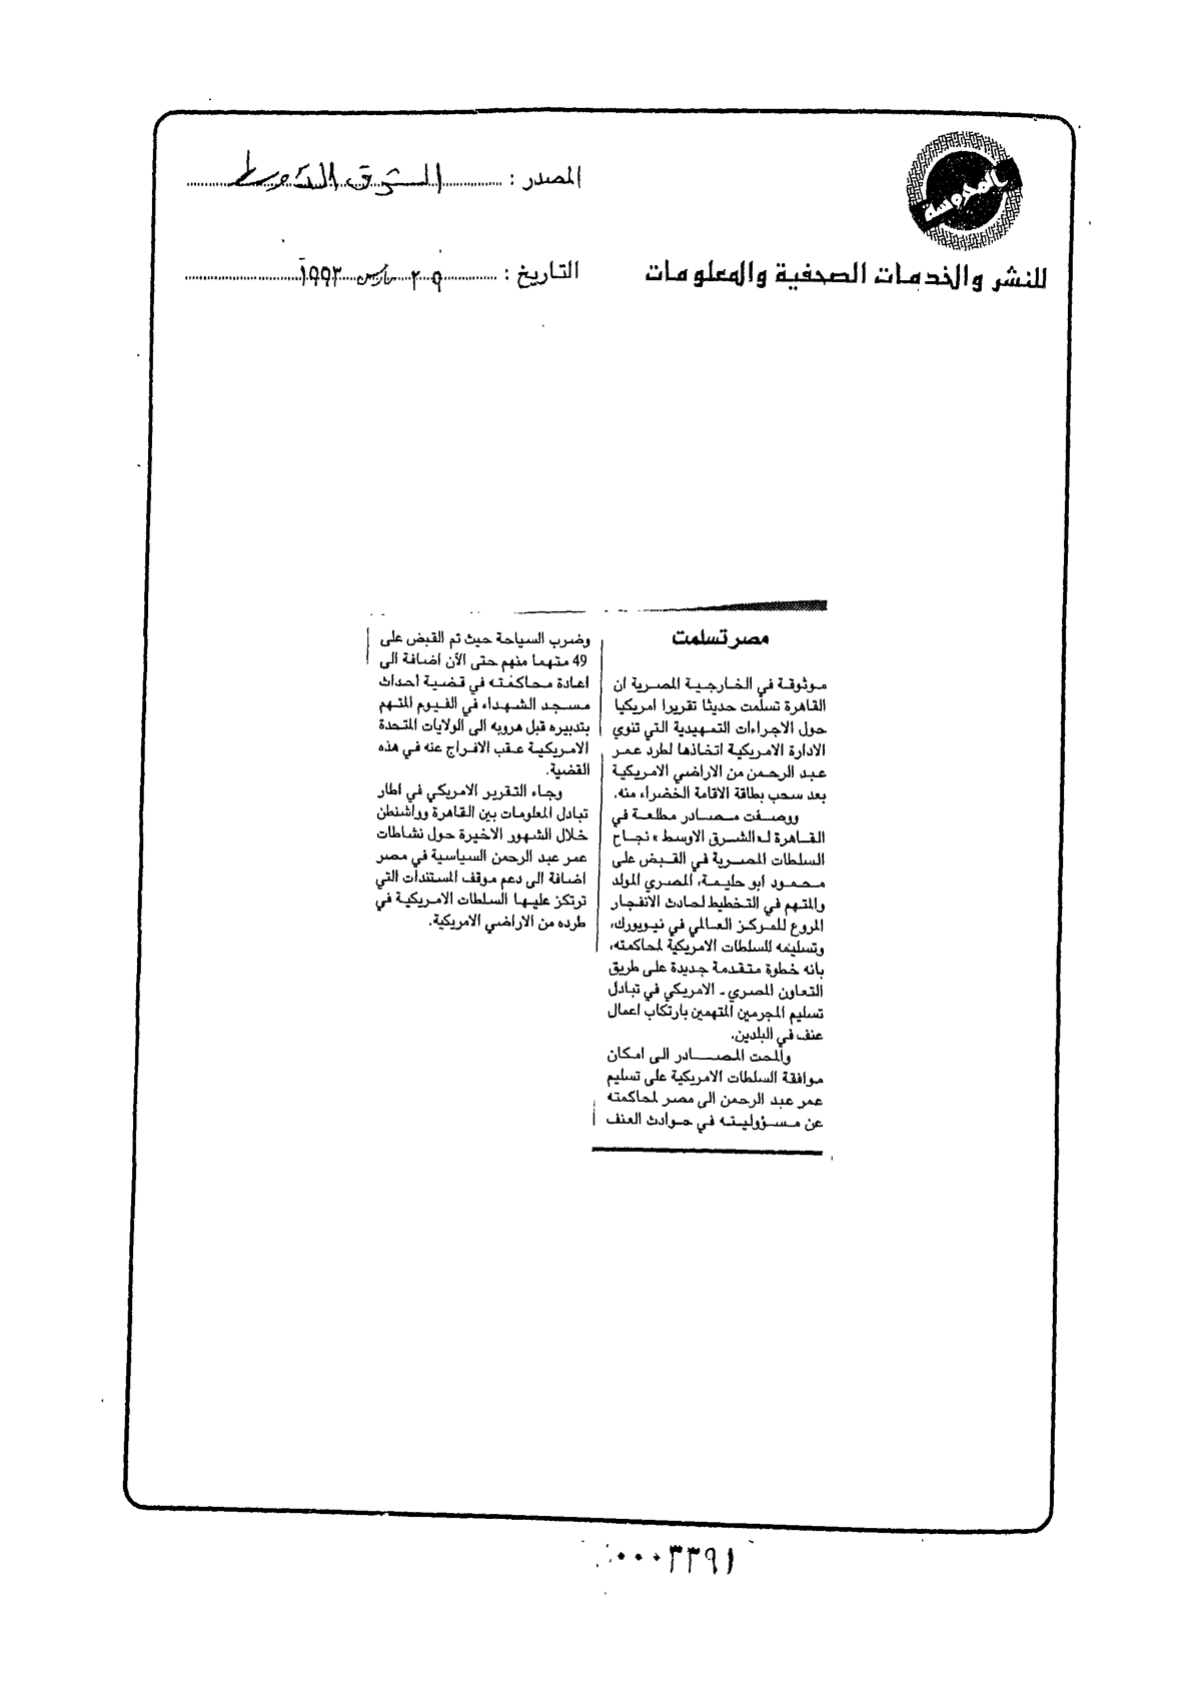 المحروسة
للنشر والخدمات الصحفية والمعلومات
المصدر : الشرق الأوسط
التاريخ : ٢٥ مارس ١٩٩٣
مصر تسلمت
موثوقة في الخارجية المصرية ان
القاهرة تسلمت حديثا تقريرا امريكيا
حول الاجراءات التمهيدية التي تنوي
الادارة الامريكية اتخاذها لطرد عمر
عبد الرحمن من الاراضي الامريكية
بعد سحب بطاقة الاقامة الخضراء منه.
ووصفت مصادر مطلعة في
القاهرة لـ«الشرق الاوسط» نجاح
السلطات المصرية في القبض على
محمود ابو حليمة، المصري المولد
والمتهم في التخطيط لحادث الانفجار
المروع للمركز العالمي في نيويورك،
وتسليمه للسلطات الامريكية لمحاكمته،
بانه خطوة متقدمة جديدة على طريق
التعاون المصري ـ الامريكي في تبادل
تسليم المجرمين المتهمين بارتكاب اعمال
عنف في البلدين.
والمحت المصادر الى امكان
موافقة السلطات الامريكية على تسليم
عمر عبد الرحمن الى مصر لمحاكمته
عن مسؤوليته في حوادث العنف
وضرب السياحة حيث تم القبض على
49 متهما منهم حتى الآن اضافة الى
اعادة محاكمته في قضية احداث
مسجد الشهداء في الفيوم المتهم
بتدبيره قبل هروبه الى الولايات المتحدة
الامريكية عقب الافراج عنه في هذه
القضية.
وجاء التقرير الامريكي في اطار
تبادل المعلومات بين القاهرة وواشنطن
خلال الشهور الاخيرة حول نشاطات
عمر عبد الرحمن السياسية في مصر
اضافة الى دعم موقف المستندات التي
ترتكز عليها السلطات الامريكية في
طرده من الاراضي الامريكية.
٠٠٠٣٣٩١